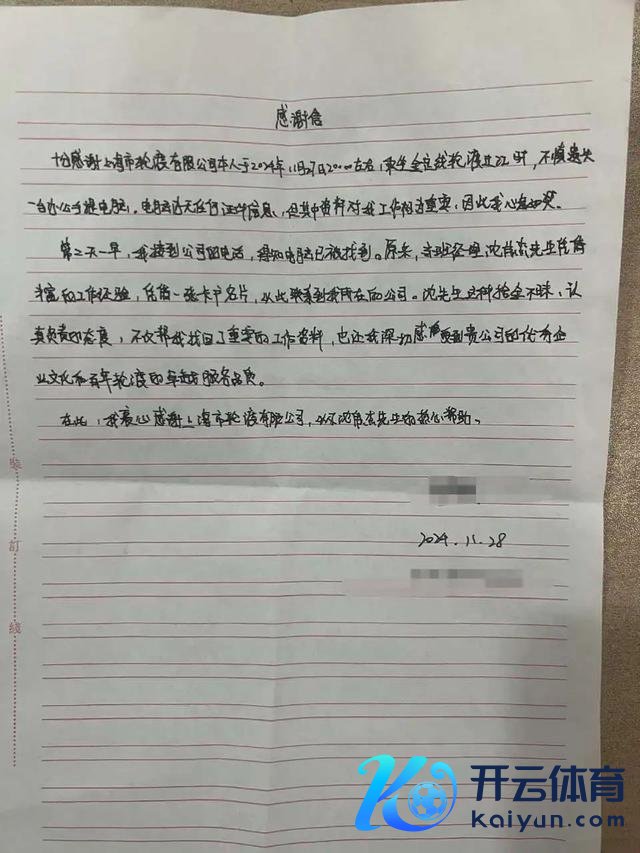 感谢信
十分感谢上海市轮渡有限公司本人于2024年11月27日20:00左右,乘坐金定线轮渡过江时,不慎遗失
一台办公手提电脑,电脑内无任何证件信息,但其中资料对我工作相当重要,因此我心急如焚。
第二天一早,我接到公司的电话,得知电脑已被找到。原来,当班经理沈伟杰先生凭借
丰富的工作经验,凭借一张卡片名片,从此联系到我所在的公司。沈先生这种拾金不昧、认
真负责的态度,不仅帮我找回了重要的工作资料,也让我深切感受到贵公司的优秀企
业文化和百年轮渡的卓越服务品质。
在此,我衷心感谢上海市轮渡有限公司,以及沈伟杰先生的热心帮助。
2024.11.28
装
訂
线
开云体育
kaiyun.com